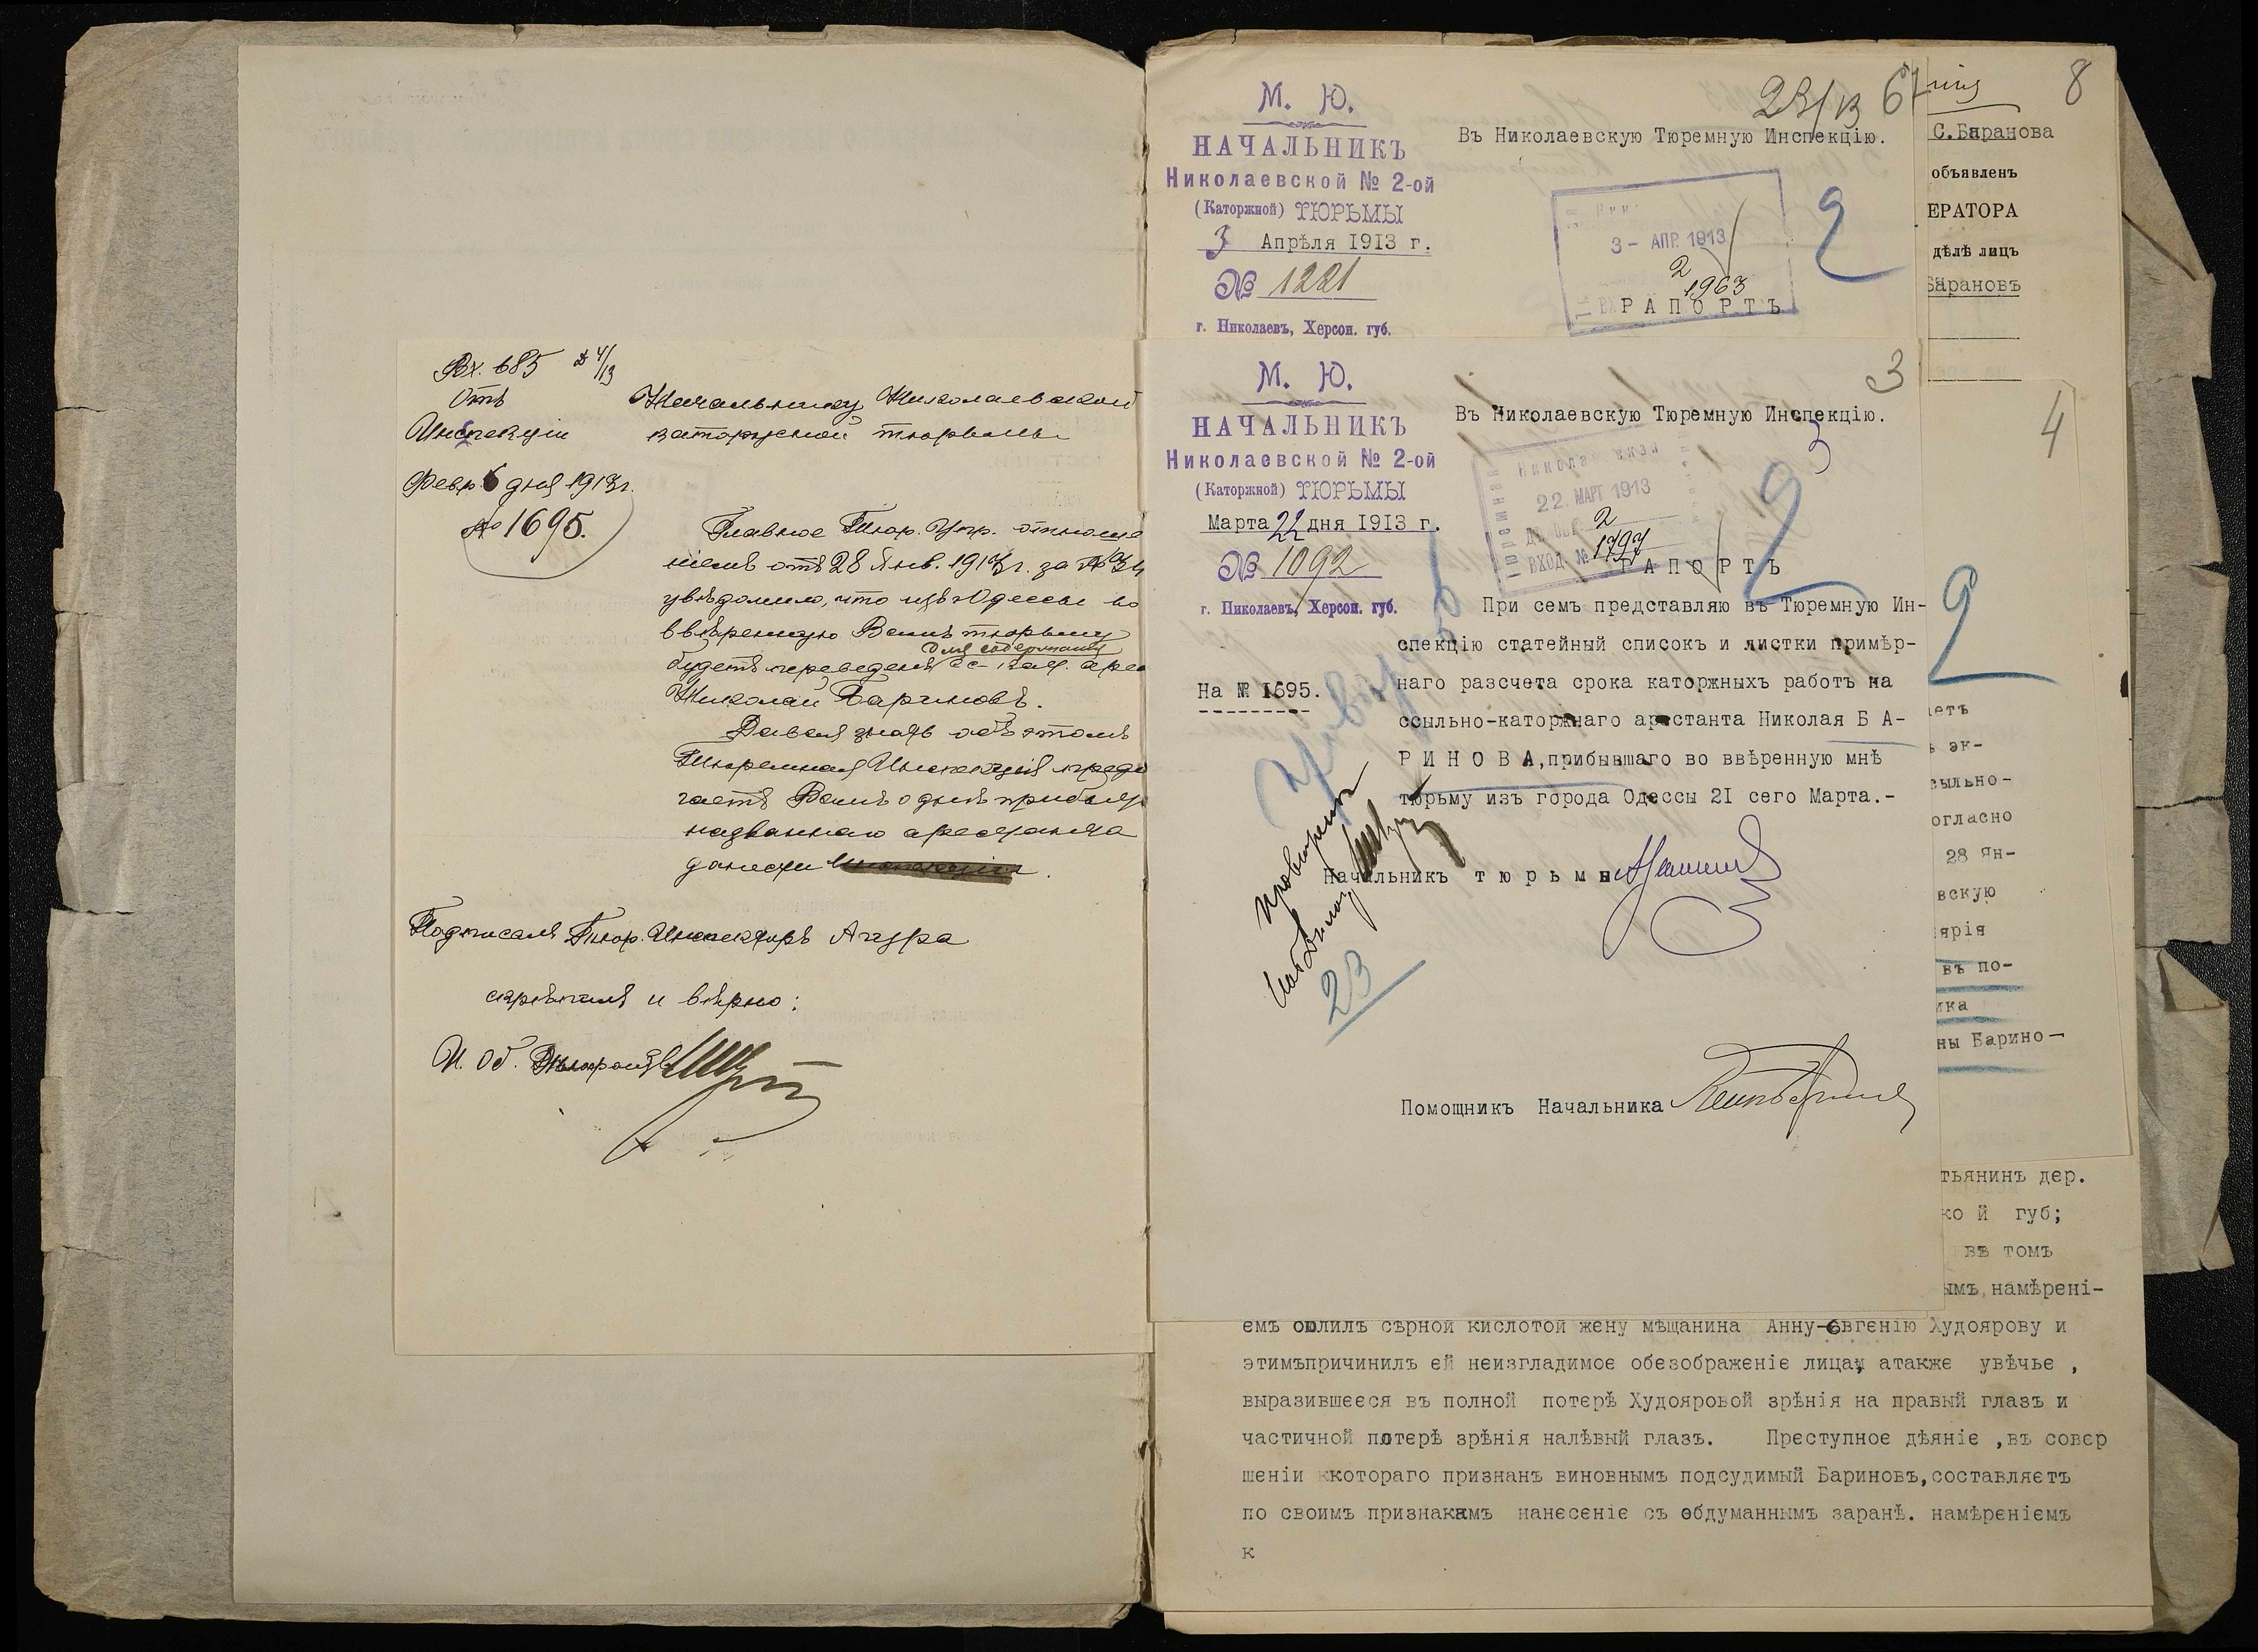 Вх. 685
Отъ
Инспекціи
Февр. 6 дня 1913 г.
№ 1695.
Начальнику Николаевской
каторжной тюрьмы
Главное Тюр. Упр. отноше
ніемъ отъ 28 Янв. 1913 г. за №
увѣдомило, что изъ Одессы во
ввѣренную Вамъ тюрьму
для содержанія
будетъ переведенъ сс-кат. арес
Николай Бариновъ.
Давая знать объ этомъ
Тюремная Инспекція предла
гаетъ Вамъ о днѣ прибытія
названнаго арестанта
донести
Подписалъ Тюр. Инспекторъ Ацура
скрѣпилъ и вѣрно:
И. об. Дѣлопроизв.
М. Ю.
НАЧАЛЬНИКЪ
Николаевской № 2-ой
(Каторжной) ТЮРЬМЫ
3 Апрѣля 1913 г.
№ 1221
г. Николаевъ, Херсон. губ.
Въ Николаевскую Тюремную Инспекцію.
3 - АПР. 1913
2
1963
РАПОРТЪ
2
8
С.Баранова
объявленъ
ЕРАТОРА
дѣлѣ лицъ
Барановъ
М. Ю.
НАЧАЛЬНИКЪ
Николаевской № 2-ой
(Каторжной) ТЮРЬМЫ
Марта 22 дня 1913 г.
№ 1092
г. Николаевъ, Херсон. губ.
На № 1695.
3
Въ Николаевскую Тюремную Инспекцію.
3
22 МАРТ 1913
2
ВХОД. № 1797
РАПОРТЪ
При семъ представляю въ Тюремную Ин-
спекцію статейный списокъ и листки примѣр-
наго разсчета срока каторжныхъ работъ на
ссыльно-каторжнаго арестанта Николая Б А-
Р И Н О В А, прибывшаго во ввѣренную мнѣ
тюрьму изъ города Одессы 21 сего Марта.-
Начальникъ тюрьмы
23
Помощникъ Начальника
4
2
етъ
ъ эк-
сыльно-
огласно
28 Ян-
вскую
ярія
въ по-
ика
ны Барино-
тьянинъ дер.
ко й губ;
въ томъ
ымъ намѣрені-
емъ облилъ сѣрной кислотой жену мѣщанина Анну-Евгенію Худоярову и
этимъпричинилъ ей неизгладимое обезображеніе лица, атакже увѣчье ,
выразившееся въ полной потерѣ Худояровой зрѣнія на правый глазъ и
частичной потерѣ зрѣнія налѣвый глазъ. Преступное дѣяніе ,въ совер
шеніи ккотораго признанъ виновнымъ подсудимый Бариновъ,составляетъ
по своимъ признакамъ нанесеніе съ обдуманнымъ заранѣ. намѣреніемъ
к